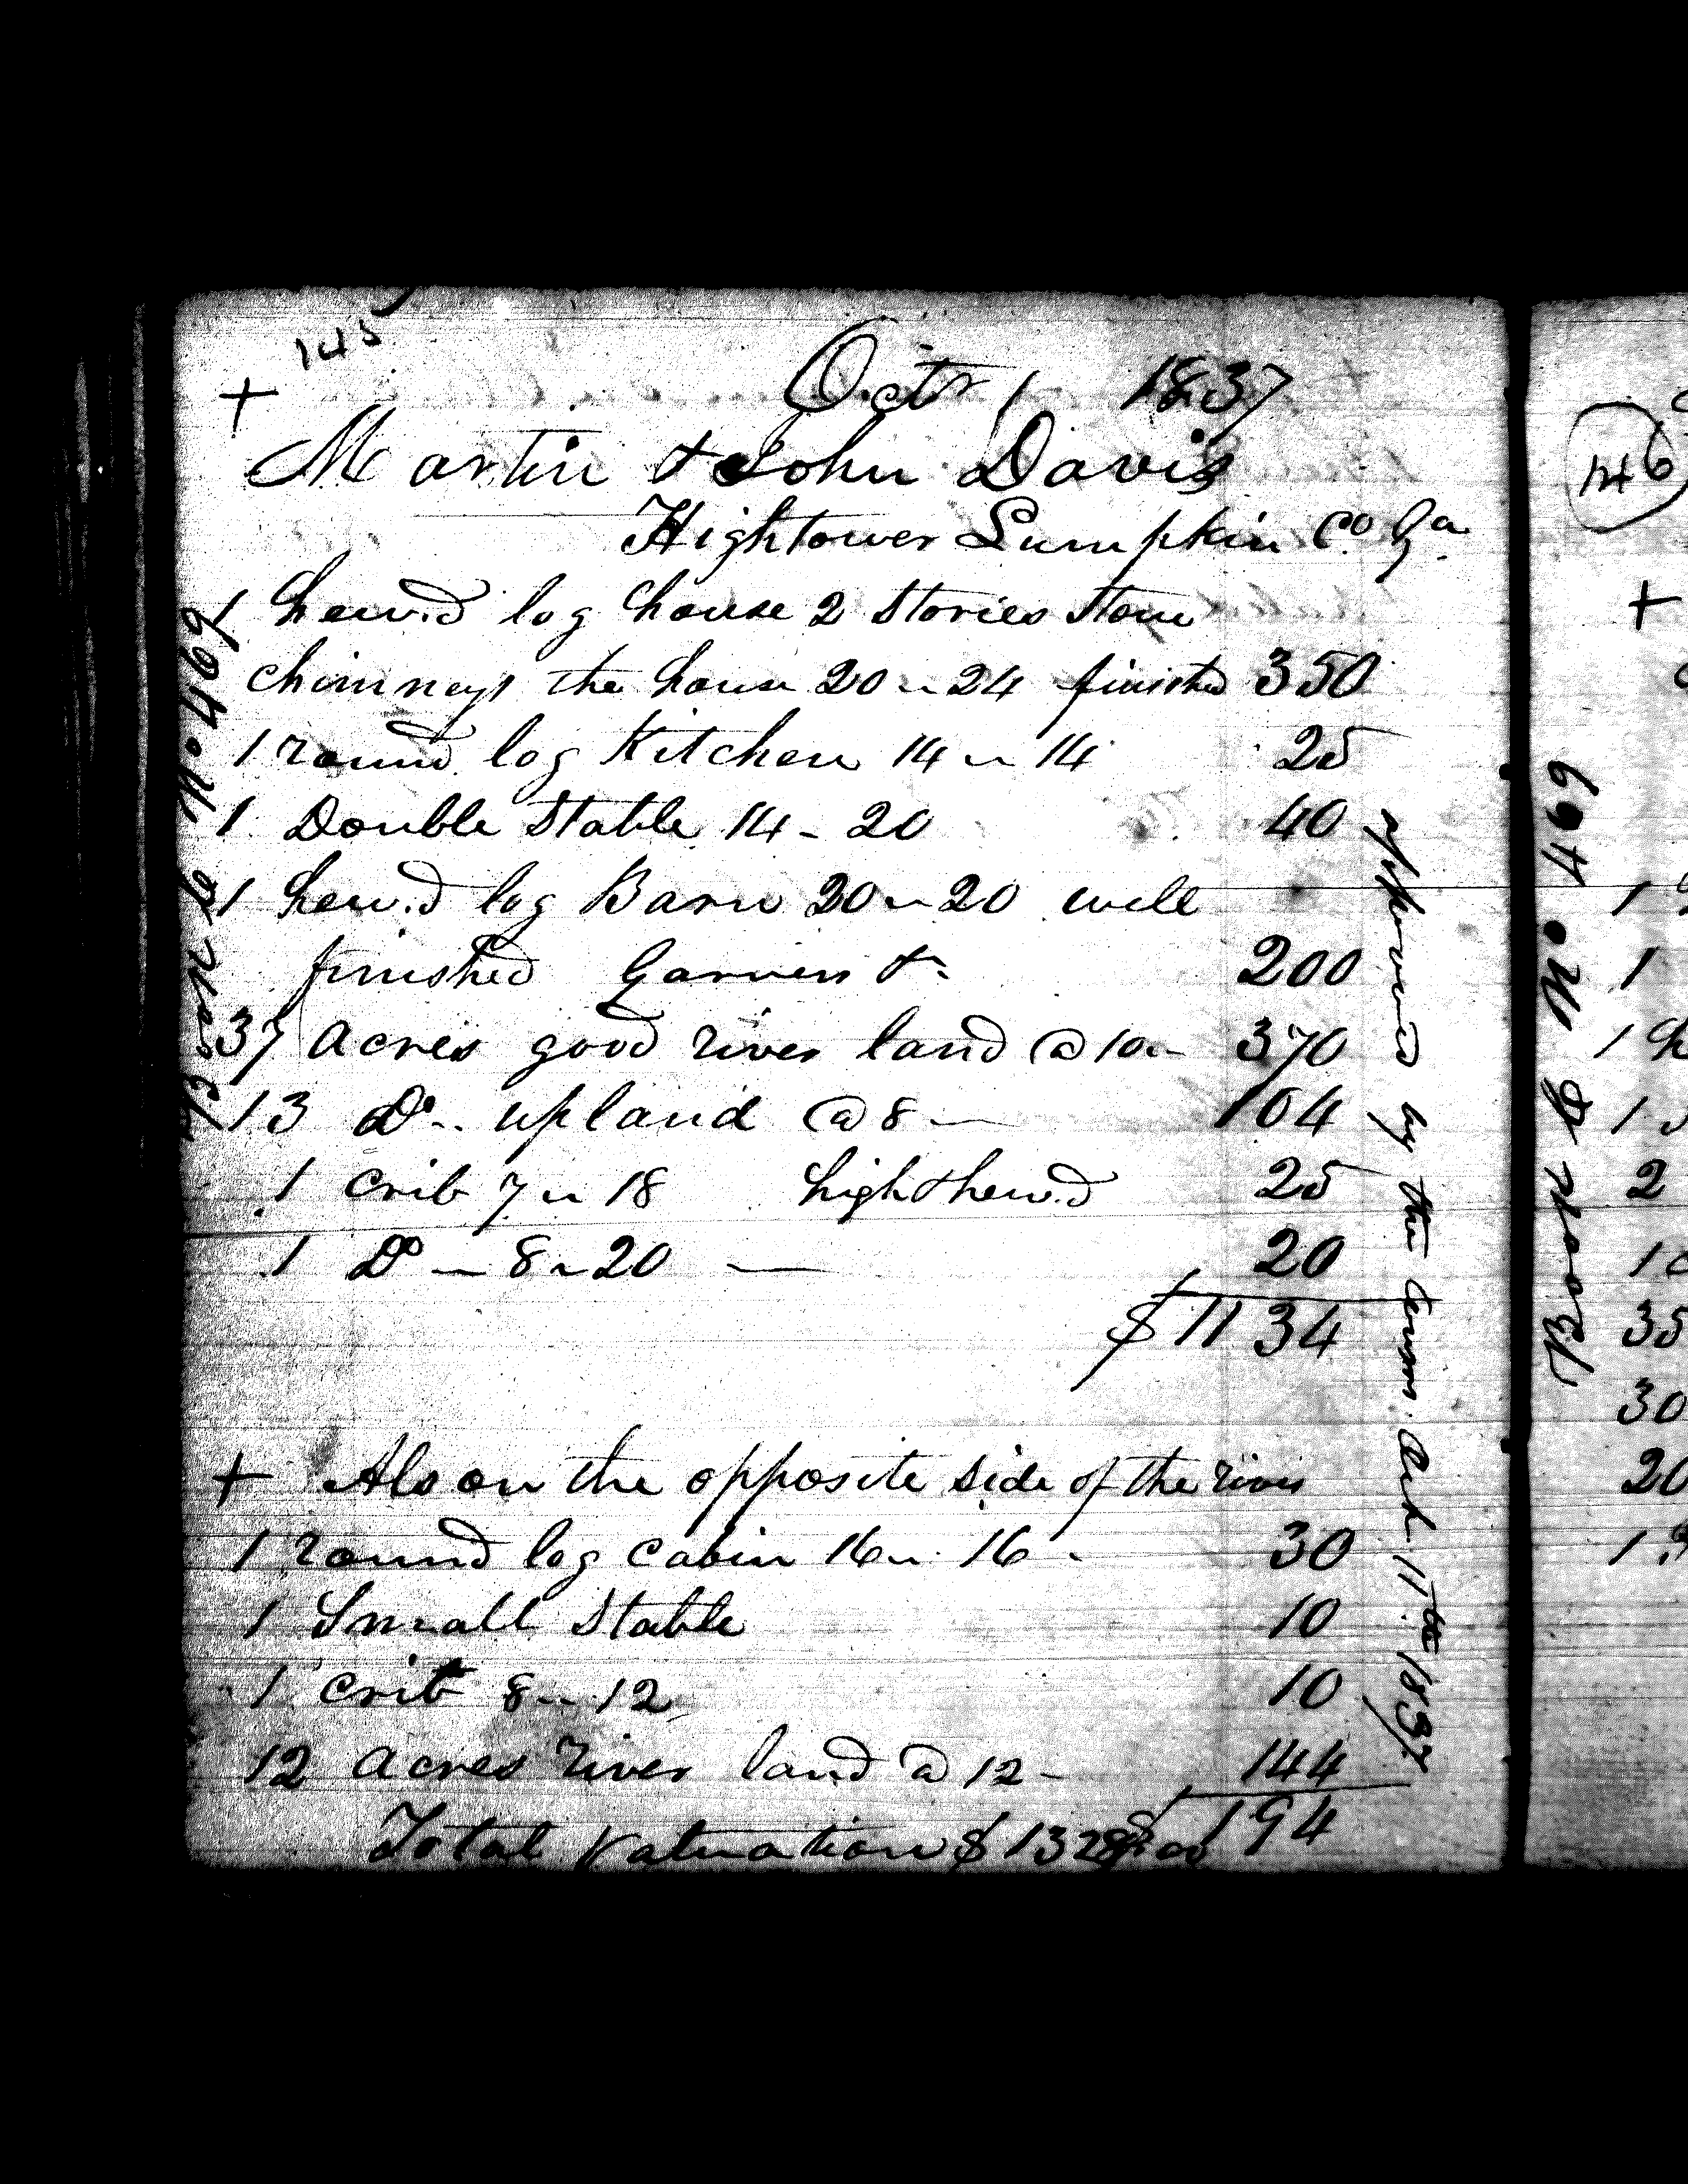 145
+ Octr 1 1837
Martin & John Davis
Hightower Lumpkin Co Ga
1 hew.d log house 2 stories stone
chimneys the house 20 ~ 24 finished 350
1 round log Kitchen 14 ~ 14 25
1 Double Stable 14 - 20 40
1 hew.d log Barn 20 ~ 20 well
finished Garners &c 200
37 acres good river land @ 10 ~ 370
13 Do ~ upland @ 8 — 104
1 Crib 7 ~ 18 high & hew.d 25
1 Do — 8 ~ 20 — 20
$1134
+ Also on the opposite side of the river
1 round log cabin 16 ~ 16 - 30
1 Small Stable 10
1 Crib 8 ~ 12 10
12 acres river land @ 12 - 144
$194
Total Valuation $1328
Book No. 469
approved by the Comrs. 11th 1837
146
+
Book No. 469
1
1
1
1
2
1
35
30
20
1